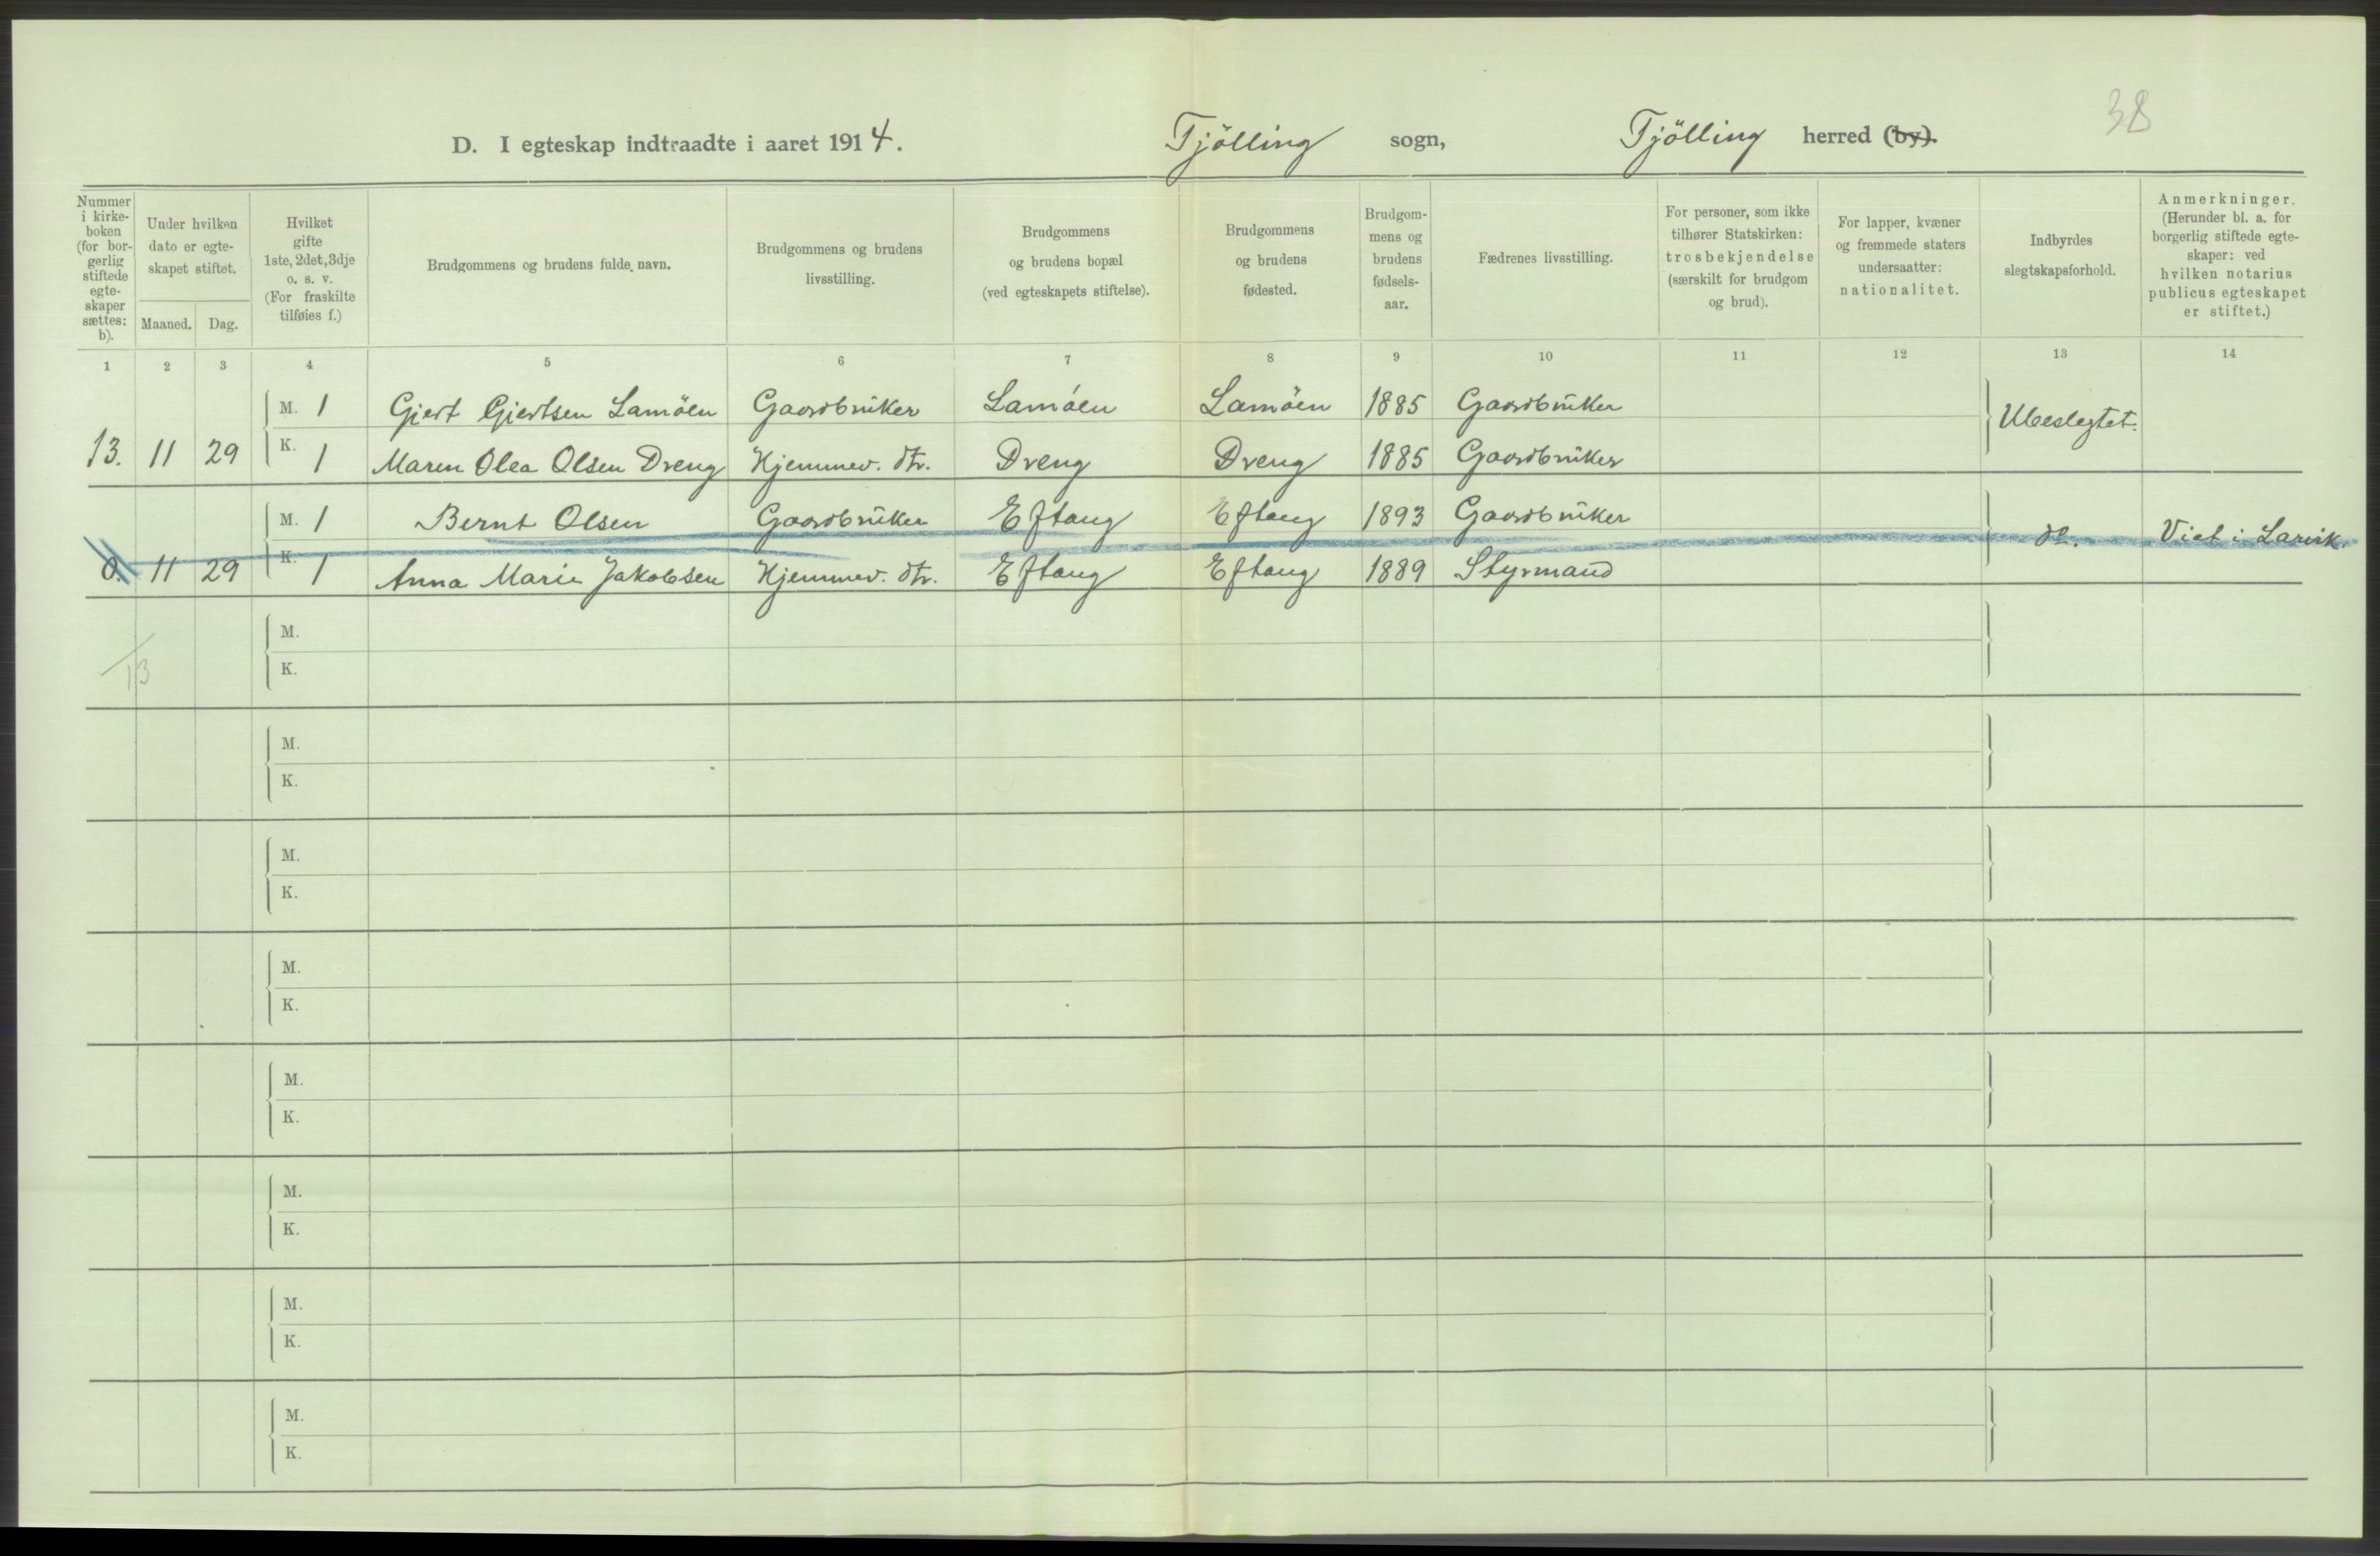 38
D. I egteskap indtraadte i aaret 1914. Tjölling sogn, Tjölling herred (by).
Nummer i kirke-boken (for bor-gerlig stiftede egte-skaper sættes: b).
Under hvilken dato er egte-skapet stiftet.
Maaned. Dag.
Hvilket gifte 1ste, 2det, 3dje o. s. v. (For fraskilte tilføies f.)
Brudgommens og brudens fulde navn.
Brudgommens og brudens livsstilling.
Brudgommens og brudens bopæl (ved egteskapets stiftelse).
Brudgommens og brudens fødested.
Brudgom-mens og brudens fødsels-aar.
Fædrenes livsstilling.
For personer, som ikke tilhører Statskirken: trosbekjendelse (særskilt for brudgom og brud).
For lapper, kvæner og fremmede staters undersaatter: nationalitet.
Indbyrdes slegtskapsforhold.
Anmerkninger. (Herunder bl. a. for borgerlig stiftede egte-skaper: ved hvilken notarius publicus egteskapet er stiftet.)
1 2 3 4 5 6 7 8 9 10 11 12 13 14
M. 1 Gjert Gjertsen Lamöen Gaardbruker Lamöen Lamöen 1885 Gaardbruker Ubeslegtet.
13. 11 29 K. 1 Maren Olea Olsen Dreng Hjemmev. dtr. Dreng Dreng 1885 Gaardbruker
M. 1 Bernt Olsen Gaardbruker Eftang Eftang 1893 Gaardbruker do. Viet i Larvik.
0. 11 29 K. 1 Anna Marie Jakobsen Hjemmev. dtr. Eftang Eftang 1889 Styrmand
M.
13
K.
M.
K.
M.
K.
M.
K.
M.
K.
M.
K.
M.
K.
M.
K.